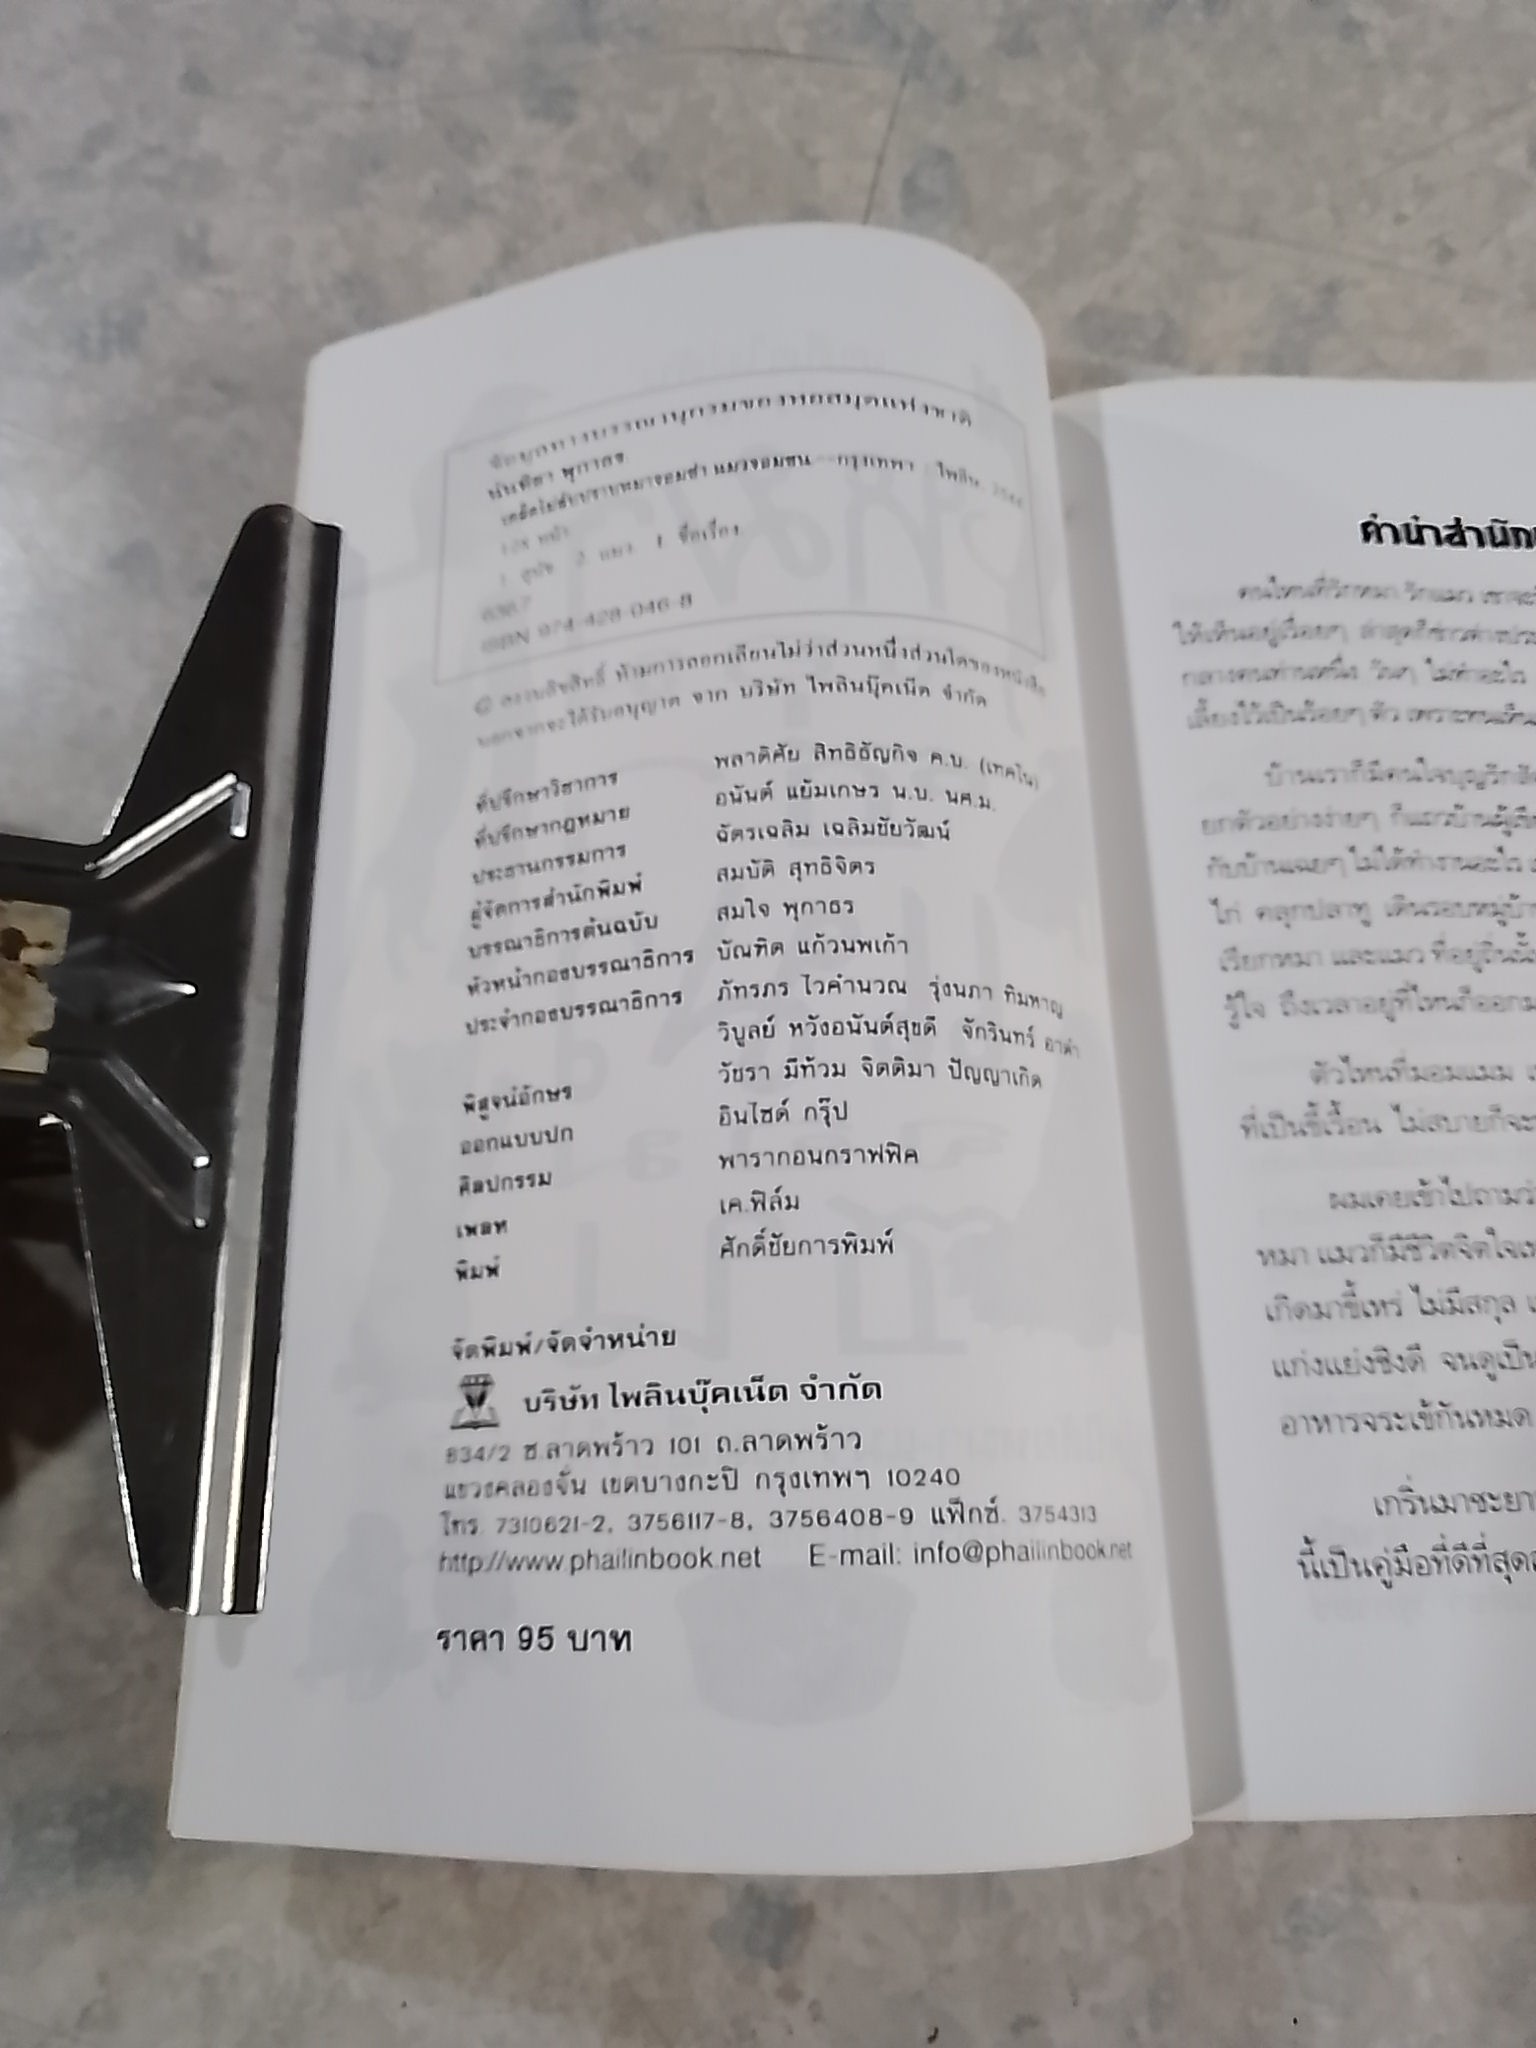 ข้อมูลทางบรรณานุกรมของหอสมุดแห่งชาติ
นันทิชา พุกาธร
เคล็ดไม่ลับปราบหมาจอมซ่า แมวจอมซน.--กรุงเทพฯ : ไพลิน,
128 หน้า
1. สุนัข 2. แมว I. ชื่อเรื่อง
636.7
ISBN 974-428-046-8
© สงวนลิขสิทธิ์ ห้ามการลอกเลียนไม่ว่าส่วนหนึ่งส่วนใดของหนังสือ
นอกจากจะได้รับอนุญาต จาก บริษัท ไพลินบุ๊คเน็ต จำกัด
ที่ปรึกษาวิชาการ พลาดิศัย สิทธิธัญกิจ ค.บ. (เทคโน)
ที่ปรึกษากฎหมาย อนันต์ แย้มเกษร น.บ. นศ.ม.
ประธานกรรมการ ฉัตรเฉลิม เฉลิมชัยวัฒน์
ผู้จัดการสำนักพิมพ์ สมบัติ สุทธิจิตร
บรรณาธิการต้นฉบับ สมใจ พุกาธร
หัวหน้ากองบรรณาธิการ บัณฑิต แก้วนพเก้า
ประจำกองบรรณาธิการ ภัทรภร ไวคำนวณ รุ่งนภา ทิมหาญ
วิบูลย์ หวังอนันต์สุขดี จักรินทร์ อาดำ
พิสูจน์อักษร วัชรา มีท้วม จิตติมา ปัญญาเกิด
ออกแบบปก อินไซด์ กรุ๊ป
ศิลปกรรม พารากอนกราฟฟิค
เพลท เค.ฟิล์ม
พิมพ์ ศักดิ์ชัยการพิมพ์
จัดพิมพ์/จัดจำหน่าย
บริษัท ไพลินบุ๊คเน็ต จำกัด
634/2 ซ.ลาดพร้าว 101 ถ.ลาดพร้าว
แขวงคลองจั่น เขตบางกะปิ กรุงเทพฯ 10240
โทร. 7310621-2, 3756117-8, 3756408-9 แฟ็กซ์. 3754313
http://www.phailinbook.net E-mail: info@phailinbook.net
ราคา 95 บาท
คำนำสำนัก
คนไหนที่รักหมา รักแมว เขาจะ
ให้เห็นอยู่เรื่อยๆ ล่าสุดก็ข่าวต่างประ
กลางคนท่านหนึ่ง วันๆ ไม่ทำอะไร
เลี้ยงไว้เป็นร้อยๆ ตัว เพราะทนเห็น
บ้านเราก็มีคนใจบุญรัก
ยกตัวอย่างง่ายๆ ก็แถวบ้านผู้เขีย
กับบ้านเฉยๆ ไม่ได้ทำงานอะไร
ไก่ คลุกปลาทู เดินรอบหมู่บ้า
เรียกหมา และแมว ที่อยู่ถิ่นนั้
รู้ใจ ถึงเวลาอยู่ที่ไหนก็ออกม
ตัวไหนที่มอมแมม
ที่เป็นขี้เรื้อน ไม่สบายก็จะ
ผมเคยเข้าไปถามว่
หมา แมวก็มีชีวิตจิตใจเห
เกิดมาขี้เหร่ ไม่มีสกุล
แก่งแย่งชิงดี จนดูเป็น
อาหารจระเข้กันหมด
เกริ่นมาซะยา
นี้เป็นคู่มือที่ดีที่สุด